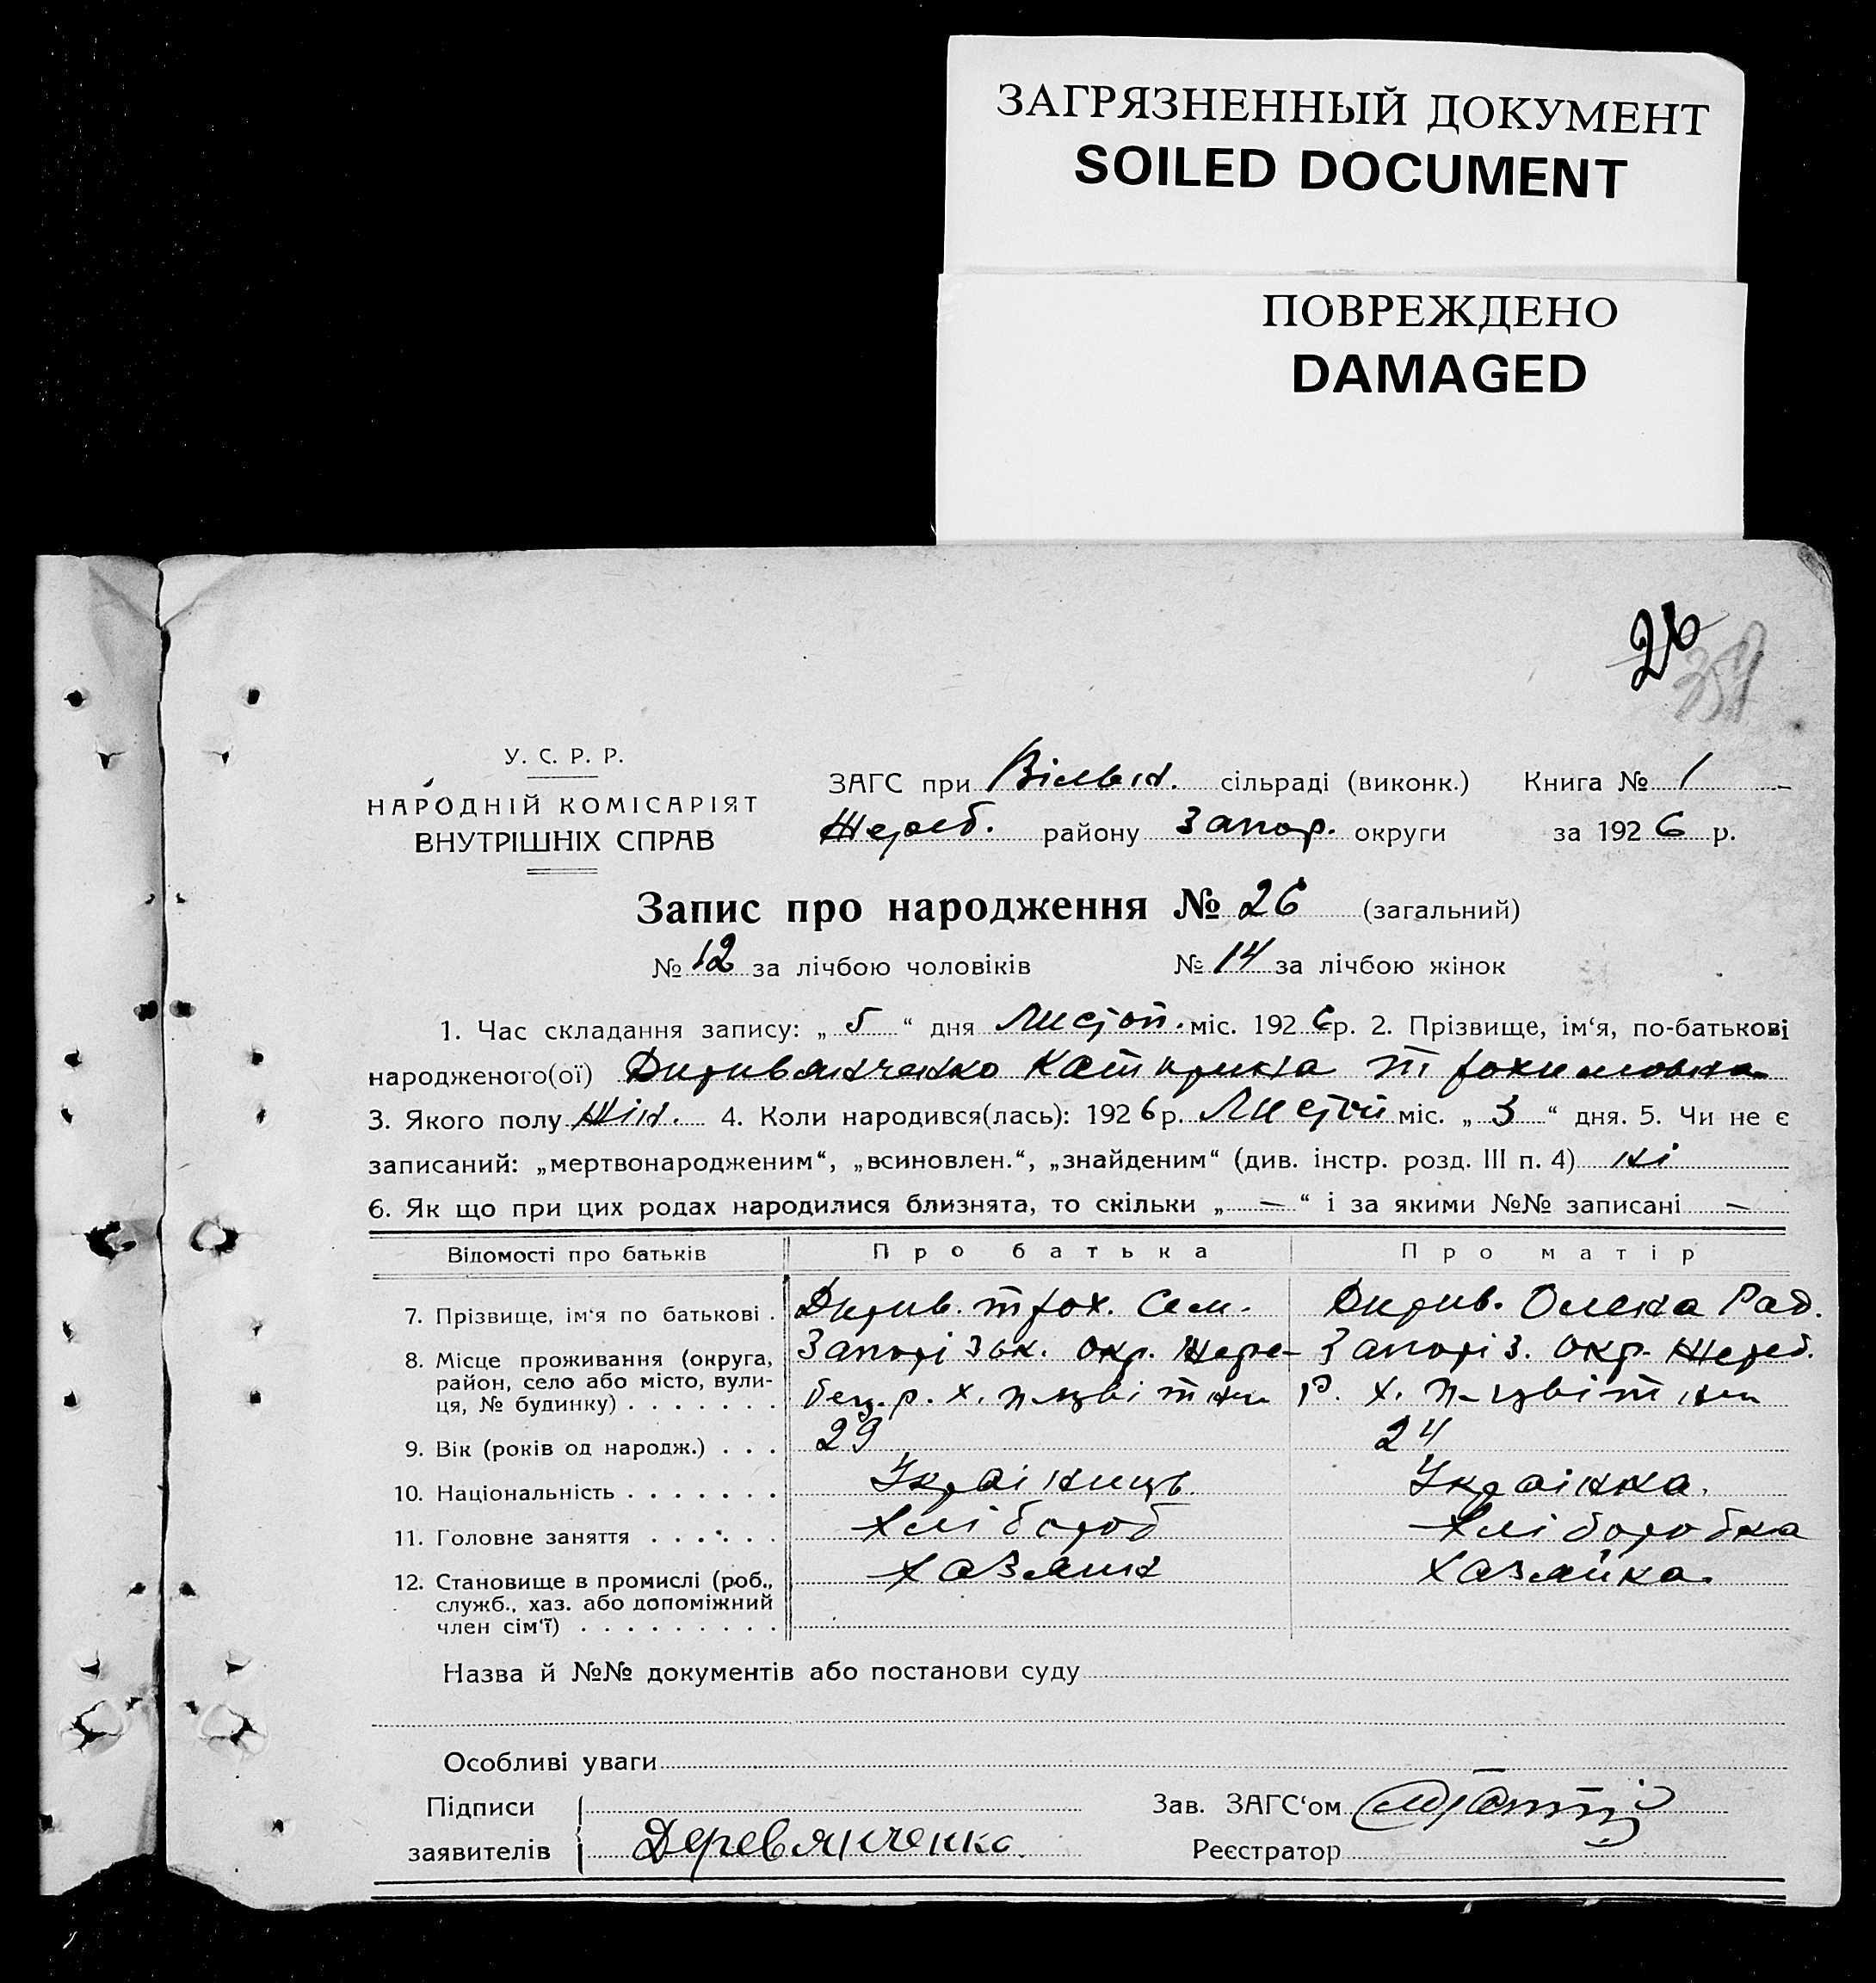 ЗАГРЯЗНЕННЫЙ ДОКУМЕНТ
SOILED DOCUMENT
ПОВРЕЖДЕНО
DAMAGED
26
У. С. Р. Р.
НАРОДНІЙ КОМІСАРІЯТ
ВНУТРІШНІХ СПРАВ
ЗАГС при Вільын. сільраді (виконк.) Книга № 1
Жереб. району Запор. округи за 1926 р.
Запис про народження № 26 (загальний)
№ 12 за лічбою чоловіків № 14 за лічбою жінок
1. Час складання запису: „ 5 “ дня Листоп. міс. 1926 р. 2. Прізвище, ім‘я, по-батькові
народженого(ої) Диривянченко Катирина Трохимовна
3. Якого полу Жін. 4. Коли народився(лась): 1926 р. Листоп міс. „ 3 “ дня. 5. Чи не є
записаний: „мертвонародженим“, „всиновлен.“, „знайденим“ (див. інстр. розд. III п. 4) ні
6. Як що при цих родах народилися близнята, то скільки „ — “ і за якими №№ записані —
Відомості про батьків Про батька Про матір
7. Прізвище, ім‘я по батькові . Дирив. Трох. Сем. Дирив. Олена Рад.
8. Місце проживання (округа, Запорізьк. окр. Жере- Запоріз. окр. Жереб.
район, село або місто, вули- бец. р. х. П-цвітни р. х. П-цвітни
ця, № будинку) . . . . . . .
9. Вік (років од народж.) . . . 29 24
10. Національність . . . . . . . Українищь. Українка.
11. Головне заняття . . . . . . Хлібороб Хліборобка
12. Становище в промислі (роб., Хазяин Хазяйка.
служб., хаз. або допоміжний
член сім‘ї) . . . . . . . . .
Назва й №№ документів або постанови суду
Особливі уваги
Підписи Зав. ЗАГС‘ом
заявителів Деревянченко. Реєстратор